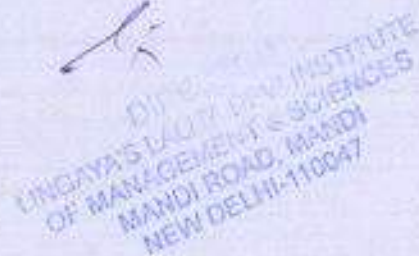 LINGAYA'S LALITA DEVI INSTITUTE
OF MANAGEMENT & SCIENCES
MANDI ROAD, MANDI
NEW DELHI-110047